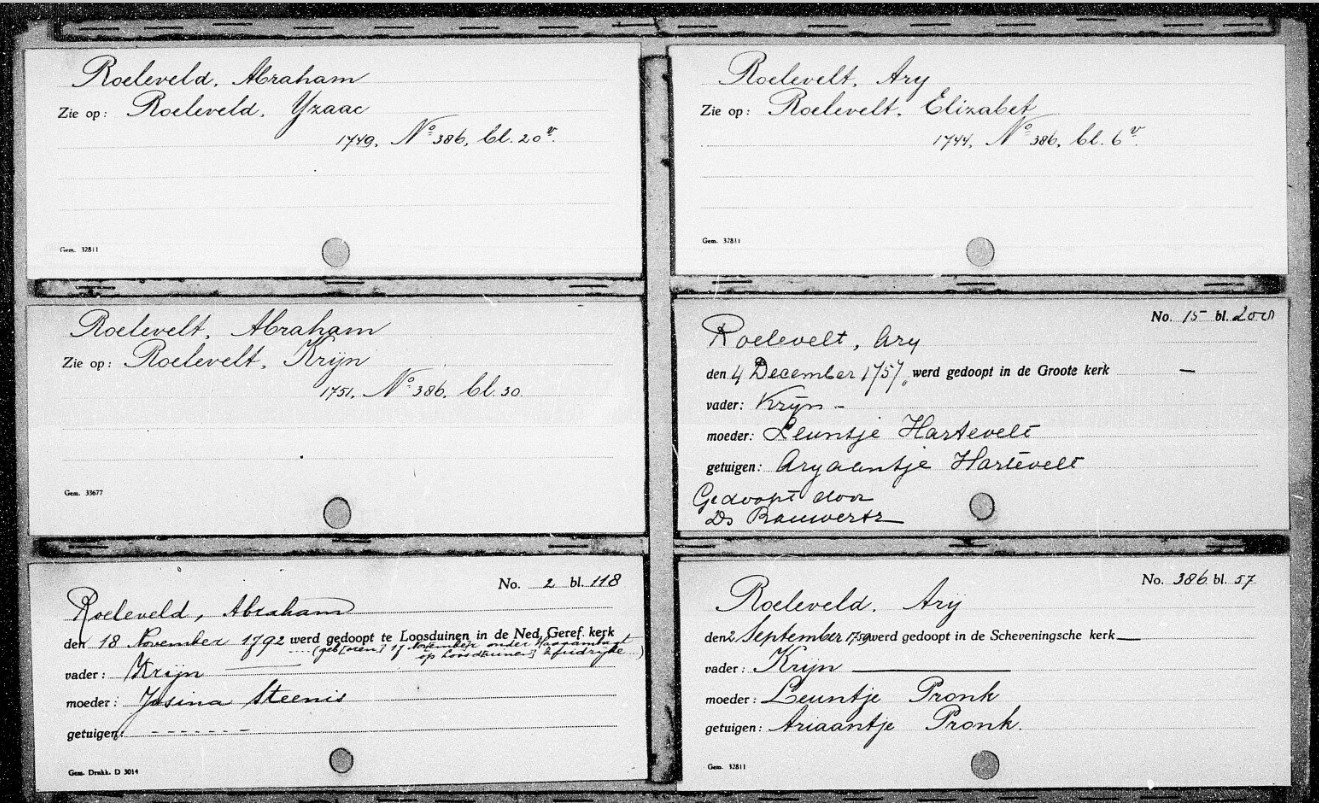 Roeleveld, Abraham
Zie op: Roeleveld, Yzaac
1749, No 386, bl. 20v.
Gem. 32811
Roelevelt, Abraham
Zie op: Roelevelt, Krijn
1751, No 386, bl. 30
Gem. 33677
No. 2 bl. 118
Roeleveld, Abraham
den 18 November 1792 werd gedoopt te Loosduinen in de Ned. Geref. kerk
(geb[oren] 17 November onder
op Loosduinen)
vader: Krijn
moeder: Josina Steenis
getuigen: - - - - - - -
Gem. Drukk. D 3014
Roelevelt, Ary
Zie op: Roelevelt, Elizabet
1744, No 386, bl. 6v.
Gem. 32811
No. 15 bl. 200
Roelevelt, Ary
den 4 December 1757, werd gedoopt in de Groote kerk —
vader: Krijn -
moeder: Leuntje Hartevelt
getuigen: Aryaentje Hartevelt
Gedoopt door
Ds
No. 386 bl. 57
Roeleveld, Ary
den 2 September 1759 werd gedoopt in de Scheveningsche kerk —
vader: Krijn
moeder: Leuntje Pronk
getuigen: Ariaantje Pronk.
Gem. 32811